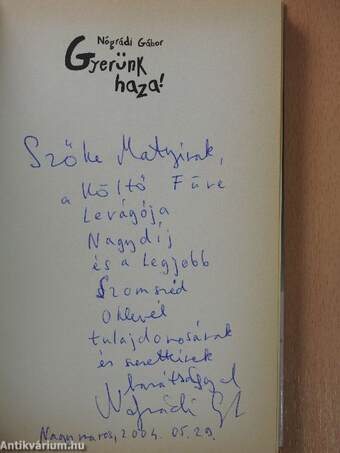 Nógrádi Gábor
Gyerünk
haza!
Szőke Matyinak,
a Költő Füve
Levágója
Nagydíj
és a Legjobb
Szomszéd
Oklevél
tulajdonosának
és
barátsággal
Nógrádi G
Nagymaros, 2004. 05. 29.
antikvarium.hu